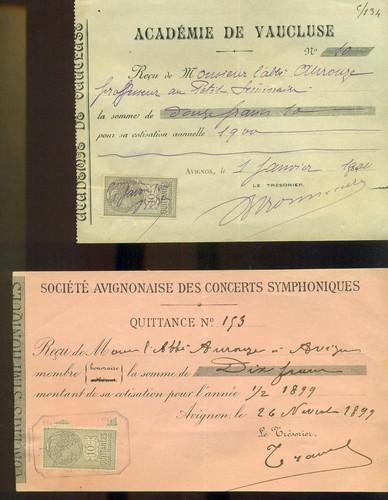 C/134
ACADÉMIE DE VAUCLUSE
Nº 10
Reçu de Monsieur l'abbé Aurouze
professeur au Petit Séminaire
la somme de douze francs 10
pour sa cotisation annuelle
1900
AVIGNON, le 1 Janvier
LE TRÉSORIER,
ACADÉMIE DE VAUCLUSE
SOCIÉTÉ AVIGNONAISE DES CONCERTS SYMPHONIQUES
QUITTANCE Nº 153
Reçu de Mons l'Abbé Aurouze à Avignon
membre honoraire la somme de Dix francs
montant de sa cotisation pour l'année 1/2 1899
Avignon, le 26 Novembre 1899
Le Trésorier,
CONCERTS SYMPHONIQUES
10c
QUITTANCES